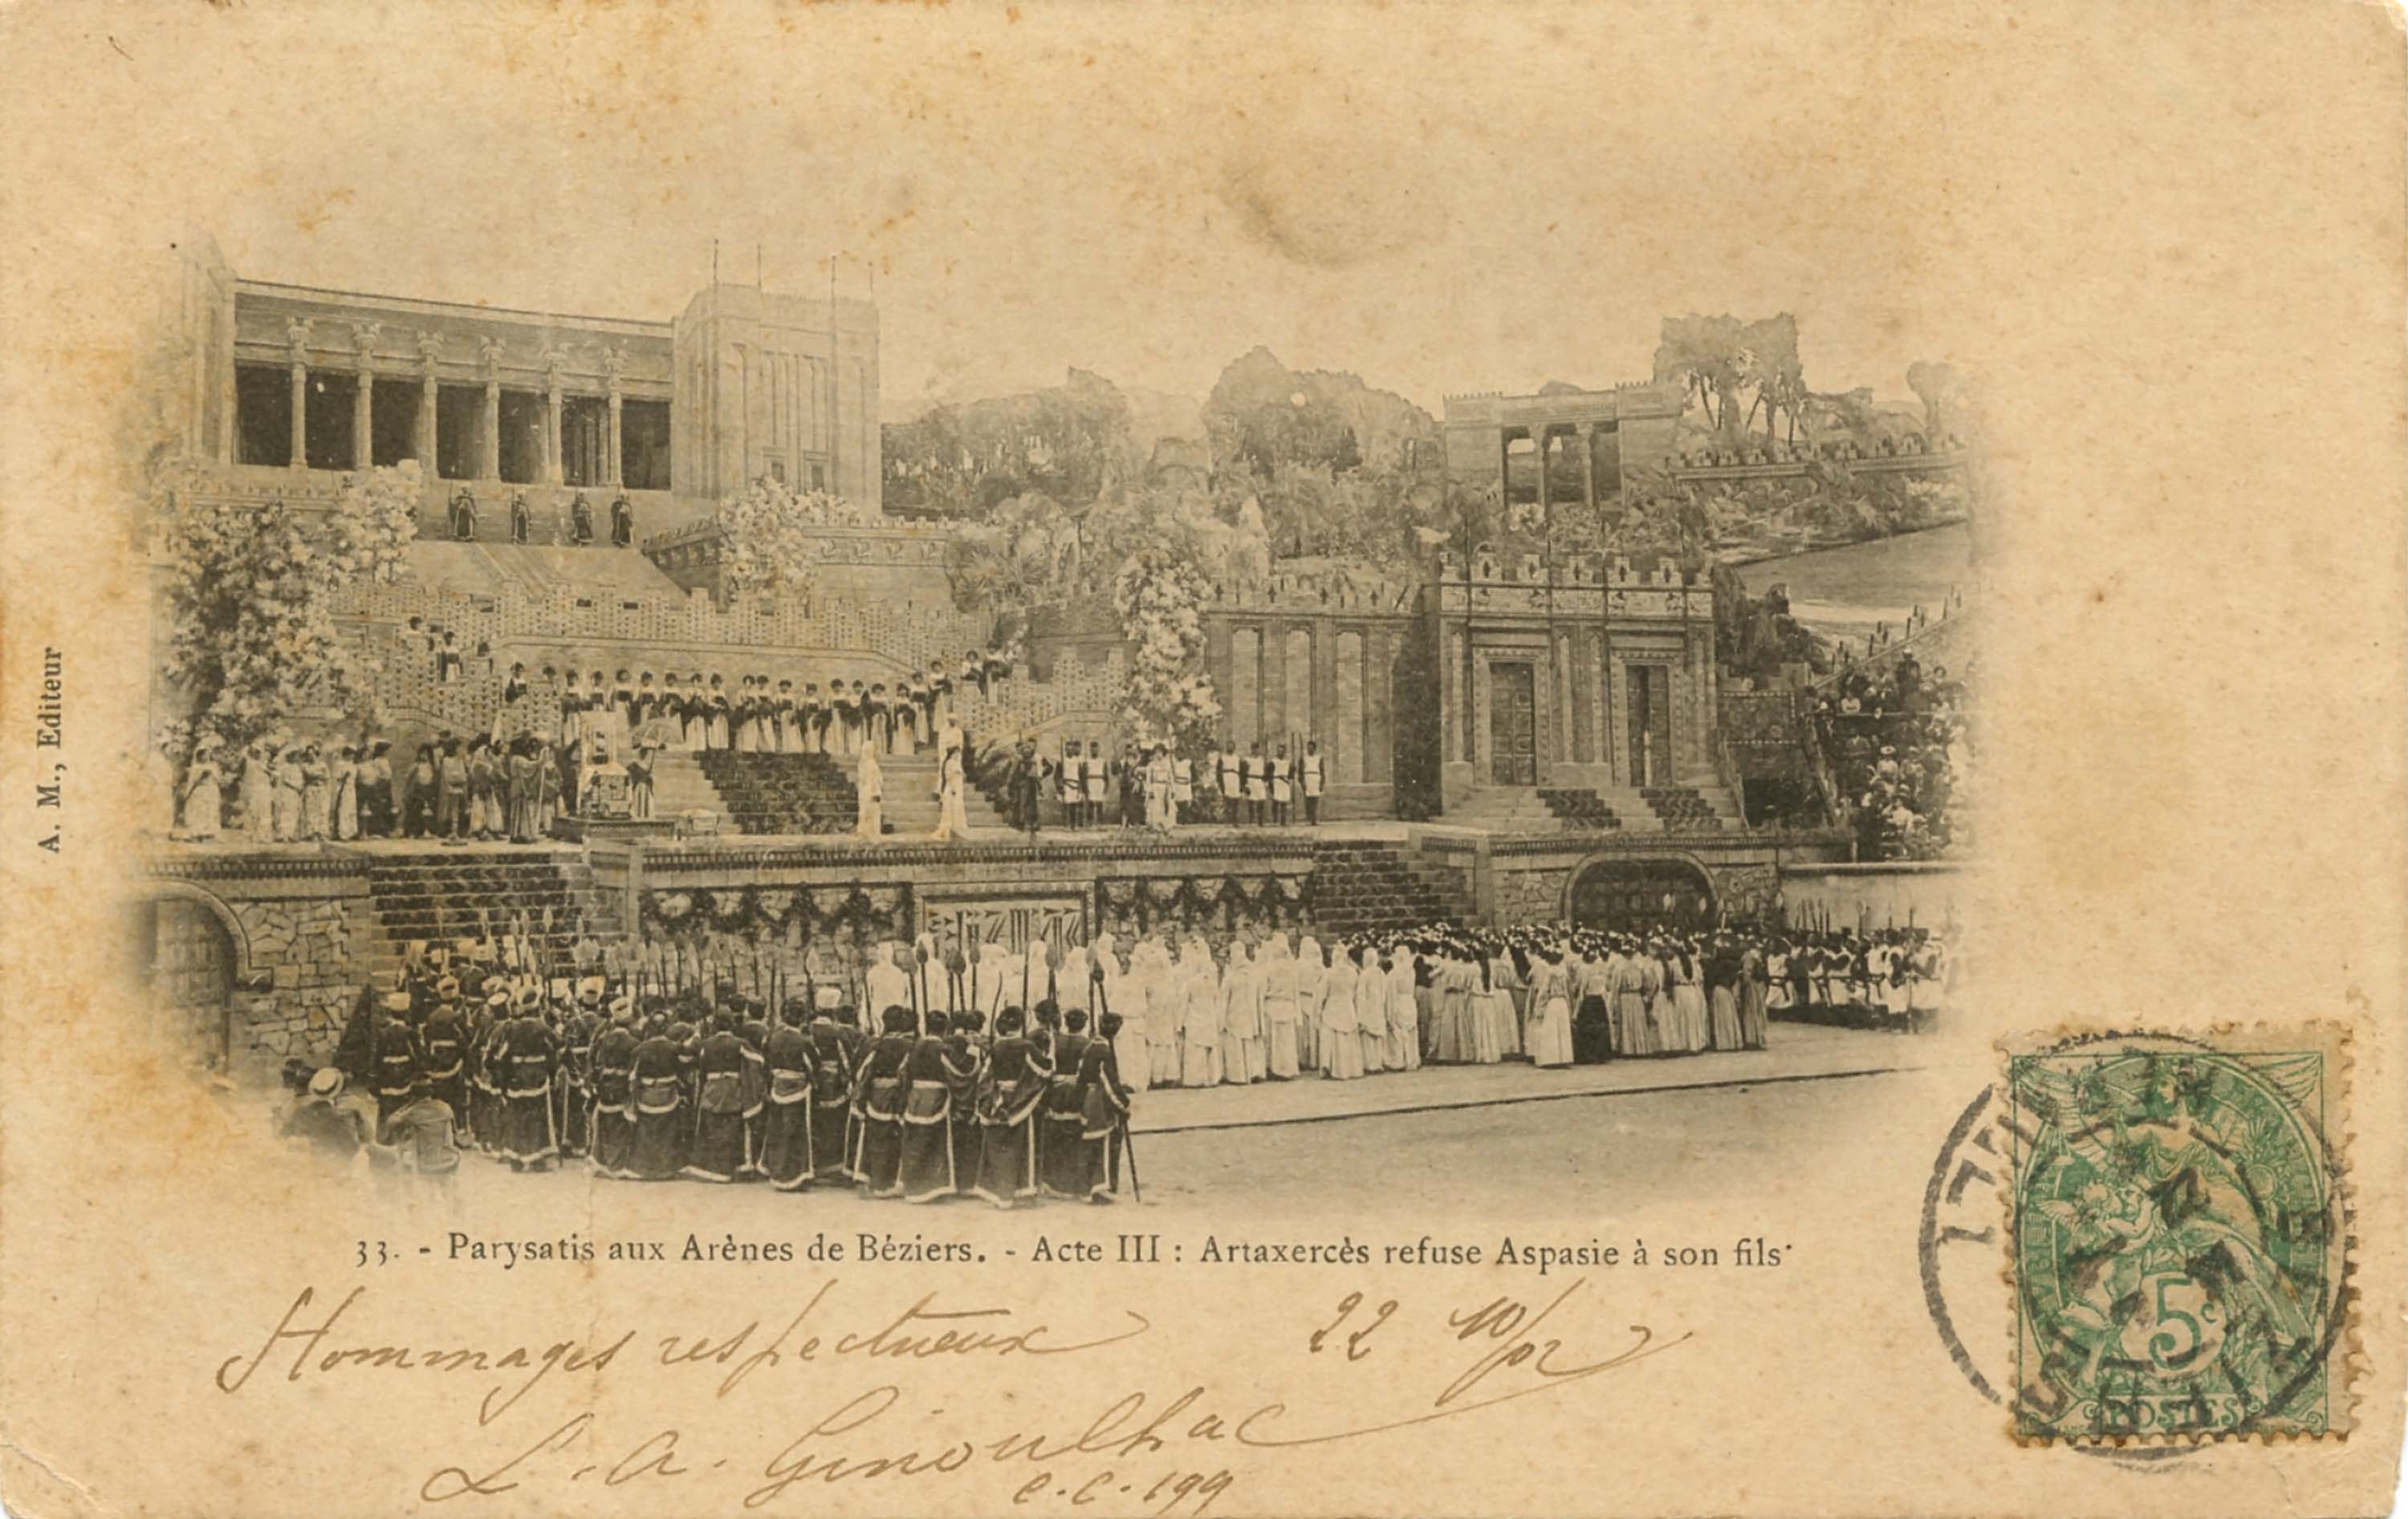 A. M., Editeur
33. - Parysatis aux Arènes de Béziers. - Acte III : Artaxercès refuse Aspasie à son fils.
Hommages respectueux 22 10/02
L. A. Ginoulhac
C. C. 199
5c
POSTES